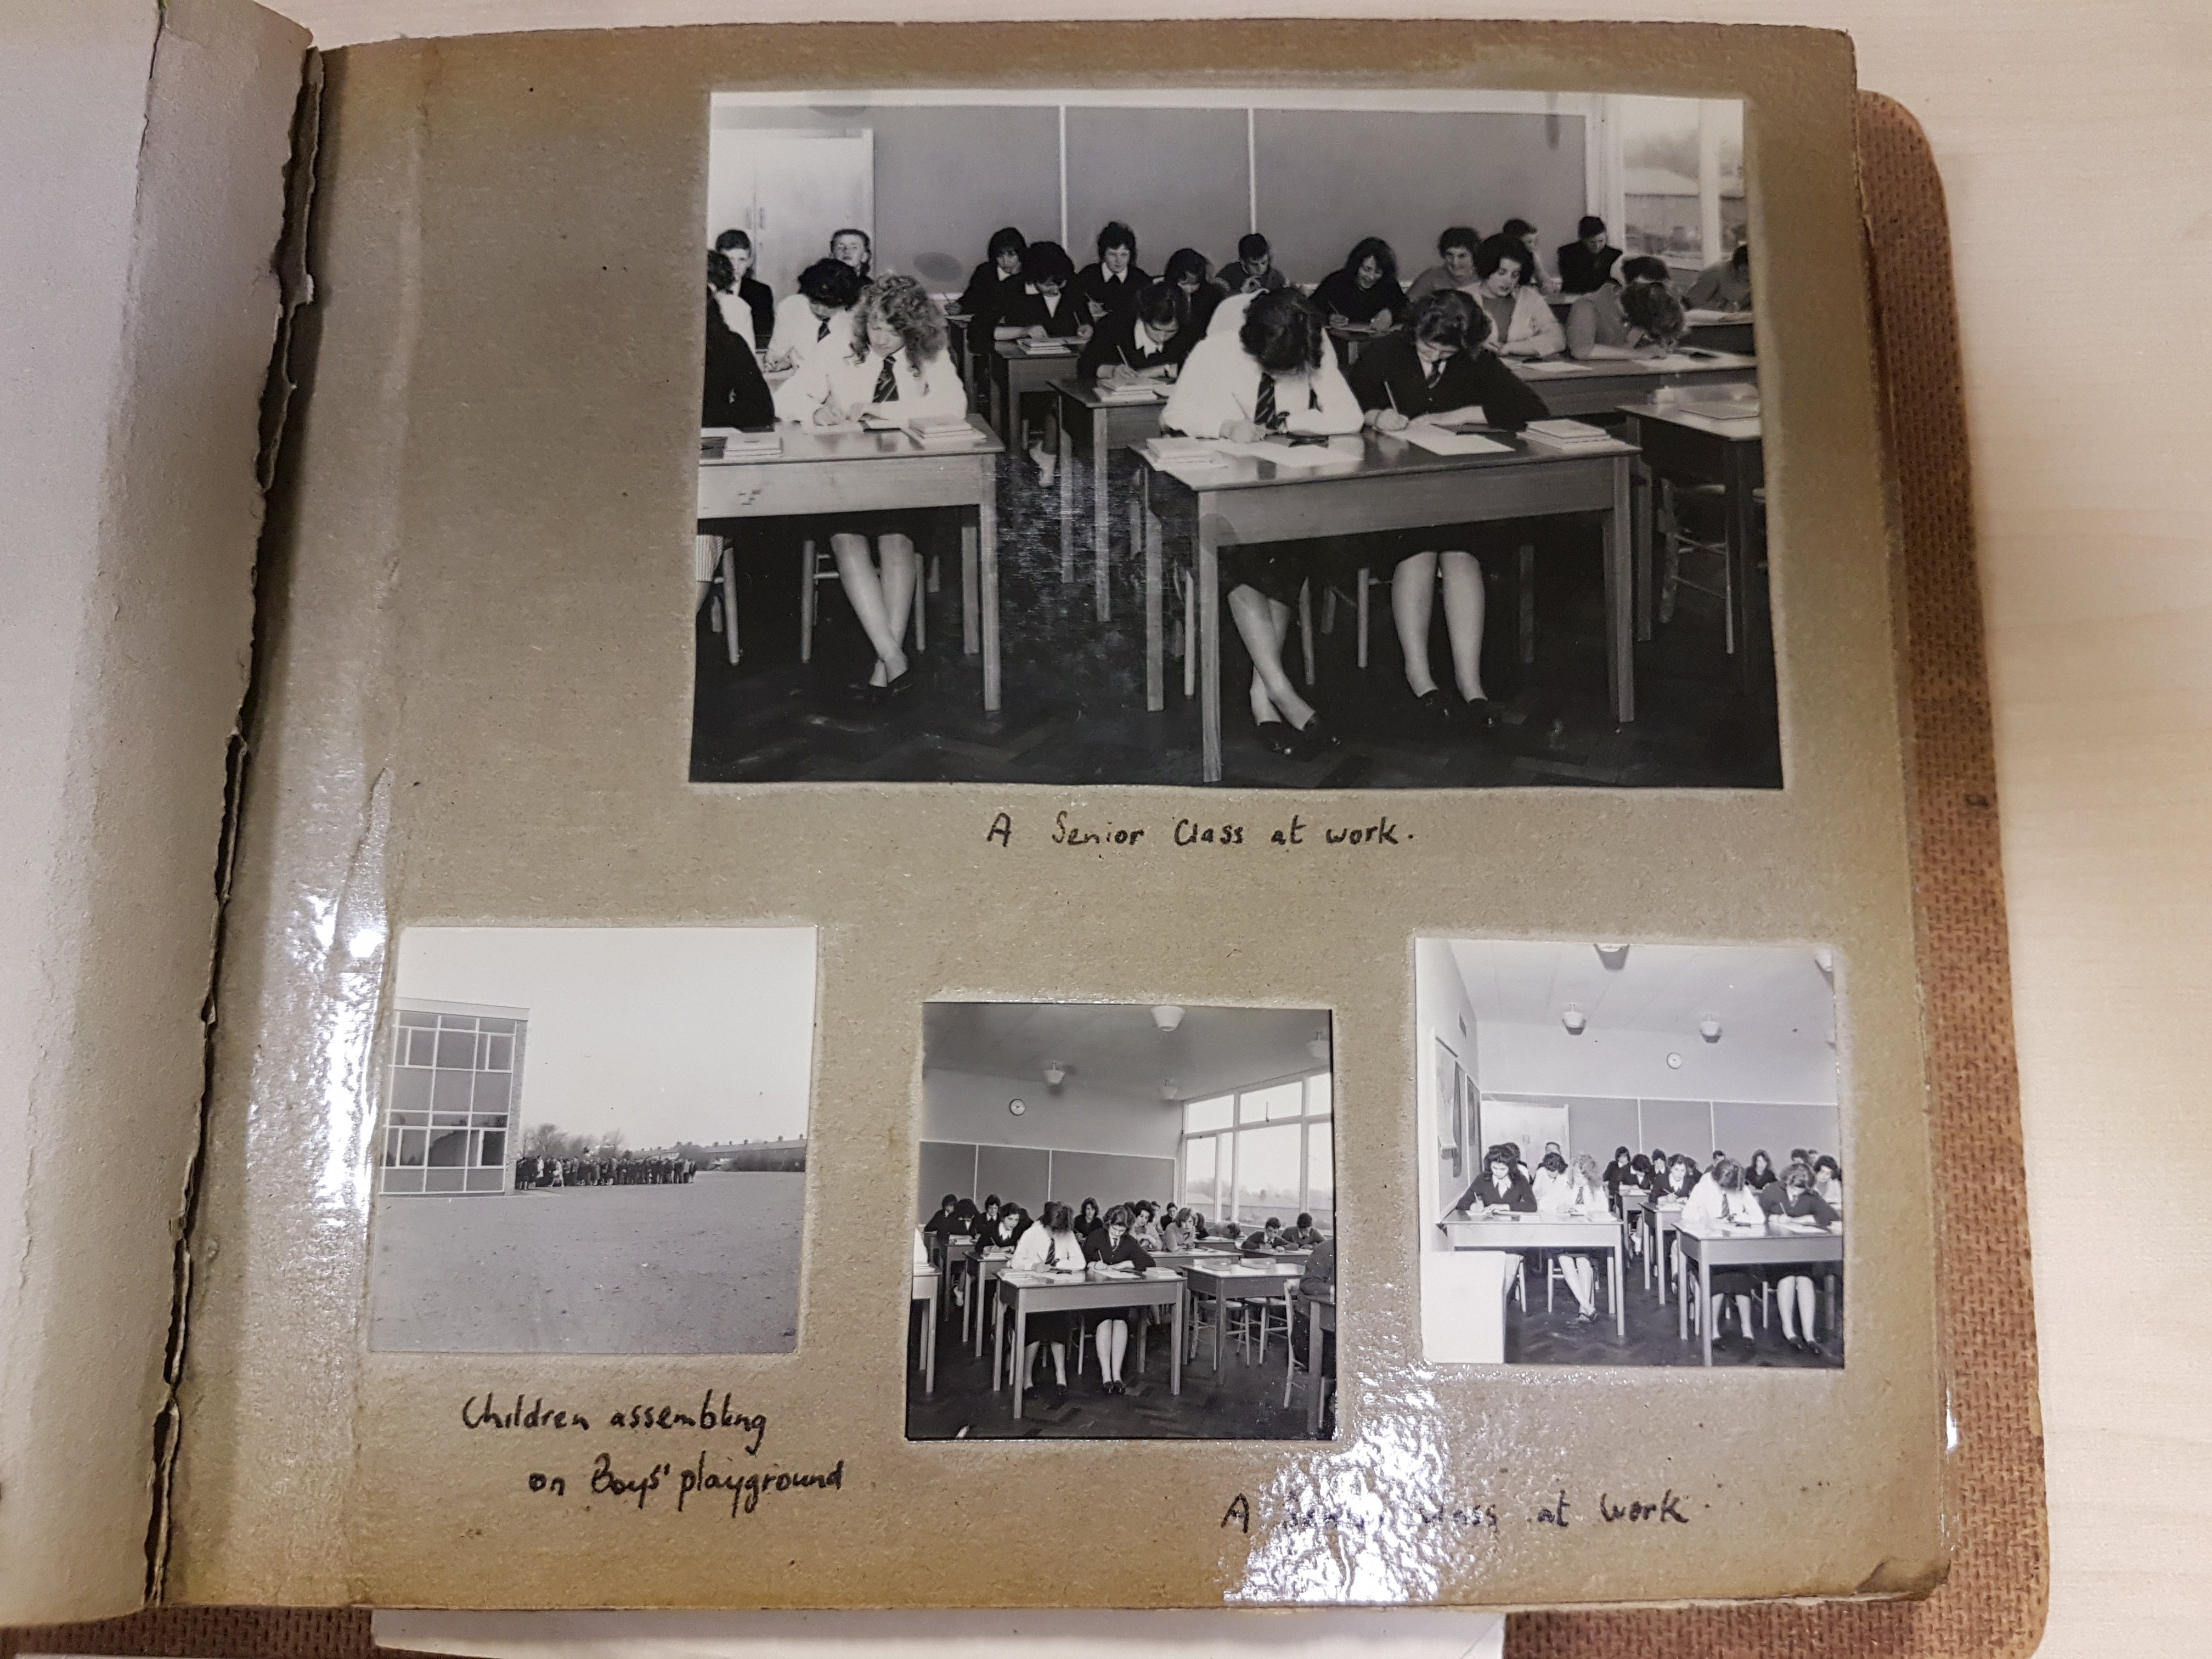 A Senior Class at work.
Children assembling
on Boys' playground
A Senior Class at work